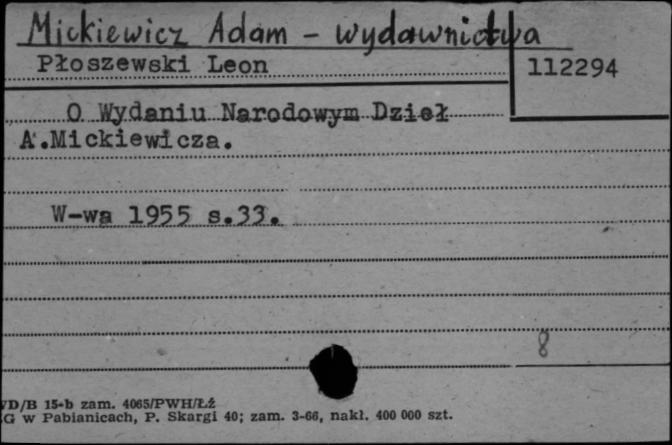 Mickiewicz Adam - wydawnictwa
Płoszewski Leon
112294
O Wydaniu Narodowym Dzieł
A.Mickiewicza.
W-wa 1955 s.33.
8
VD/B 15-b zam. 4065/PWH/Łź
.G w Pabianicach, P. Skargi 40; zam. 3-66, nakł. 400 000 szt.